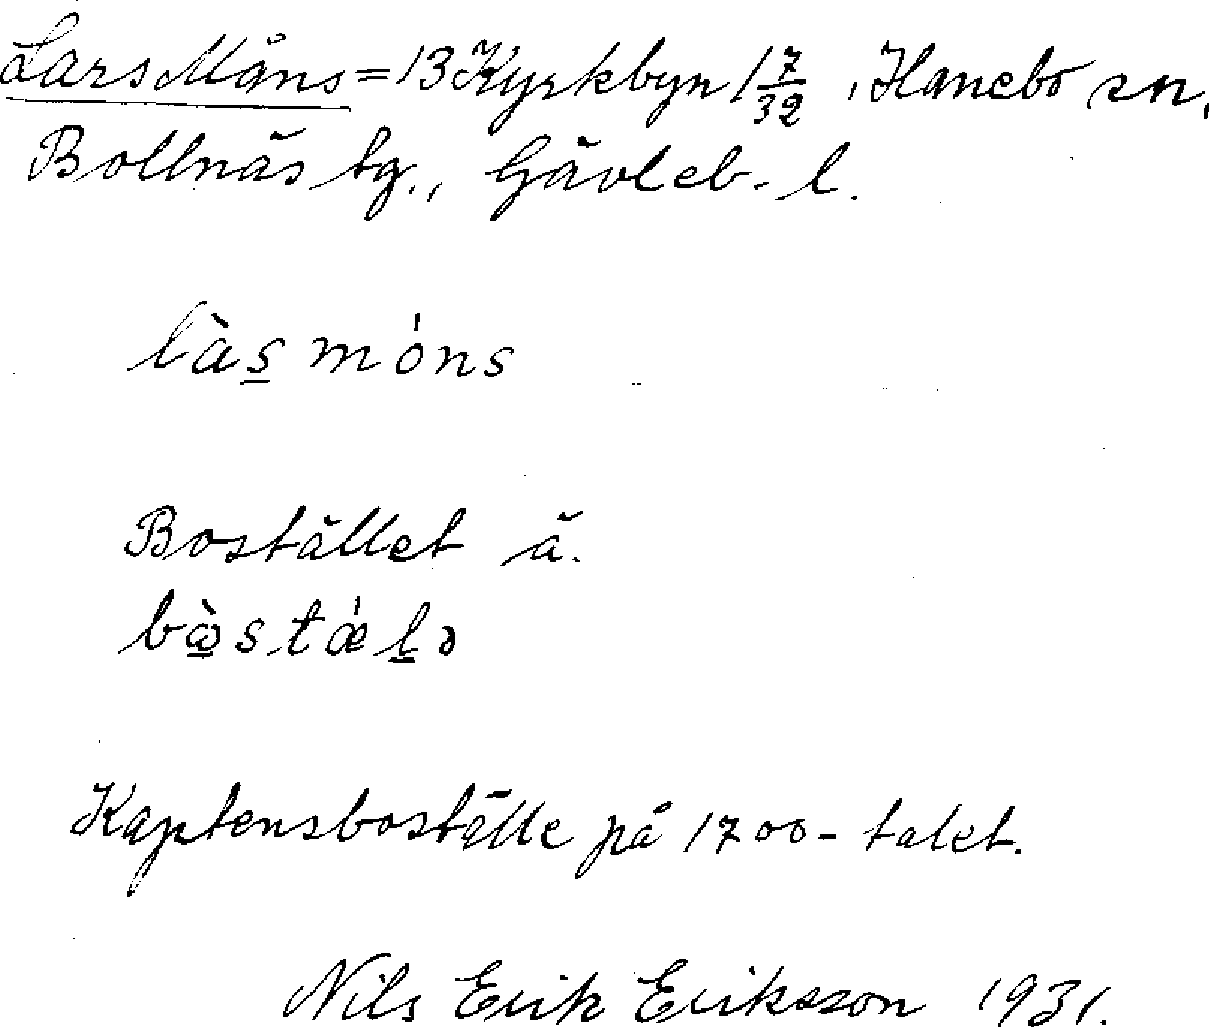 Lars Måns = 13 Kyrkbyn 1 7/32, Hanebo sn,
Bollnäs tg., Gävleb. l.
làs̲ móns
Bostället ä.
bæ̲̀stǽl̲ə
Kaptensboställe på 1700-talet.
Nils Erik Eriksson 1931.